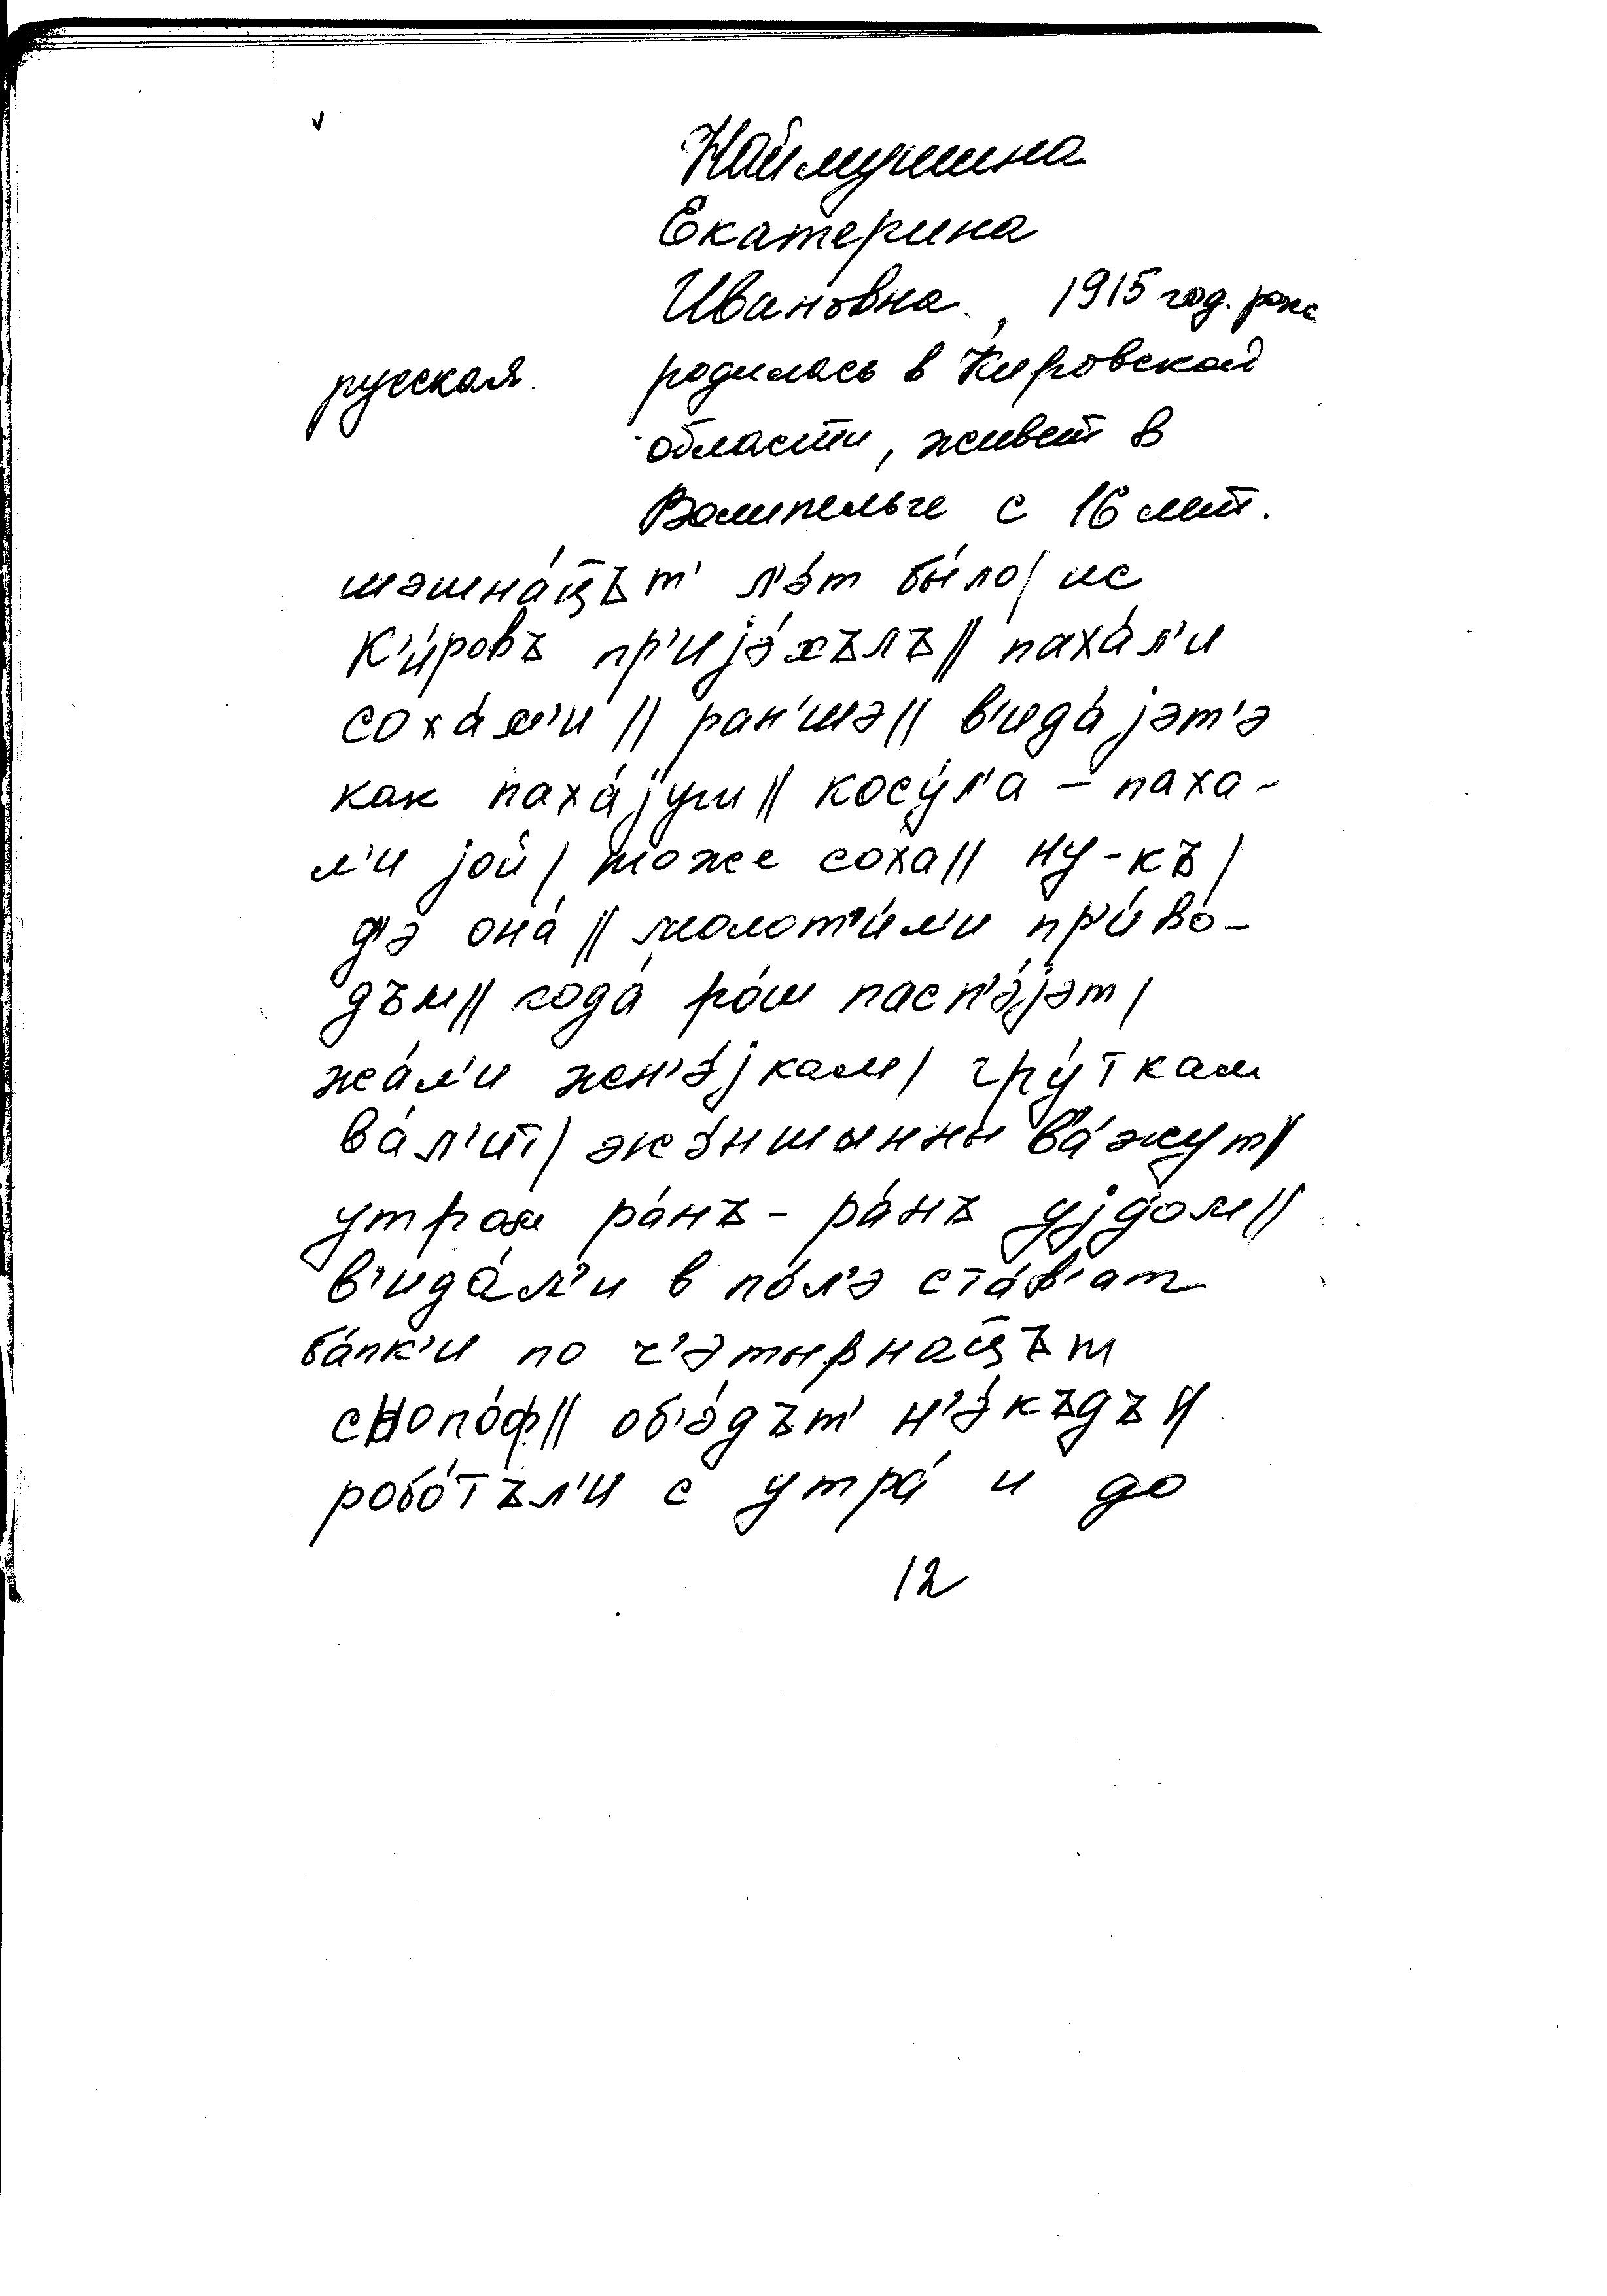 Наймушина
Екатерина
Ивановна, 1915 год. рож
русская. родилась в Кировской
области, живет в
Валипельге с 16 лет.
шэшна́ц̄ът' л'э́т бы́ло/ ис
К'и́ровъ пр'ијэ́хълъ// паха́л'и
соха́м'и // ран'шэ// в'ида́јэт'э
как паха́јуш// косу́л'а – паха-
л'и јой/ тоже соха// ну-къ/
д'э она́ // молот'и́л'и пр'и́во́-
дъм// кода́ ро́ш пасп'э́јэт/
жа́л'и жн'э́јкам/ гру́ткам
ва́л'ит/ жэ́ншынны в'а́жут//
утром ра́нъ- ра́нъ уjдом//
в'ида́л'и в по́л'э ста́в'ат
ба́пк'и по ч'этырнац̄ът
снопо́ф// об'э́дът' н'э́къдъ//
робо́тъл'и с утра́ и до
12